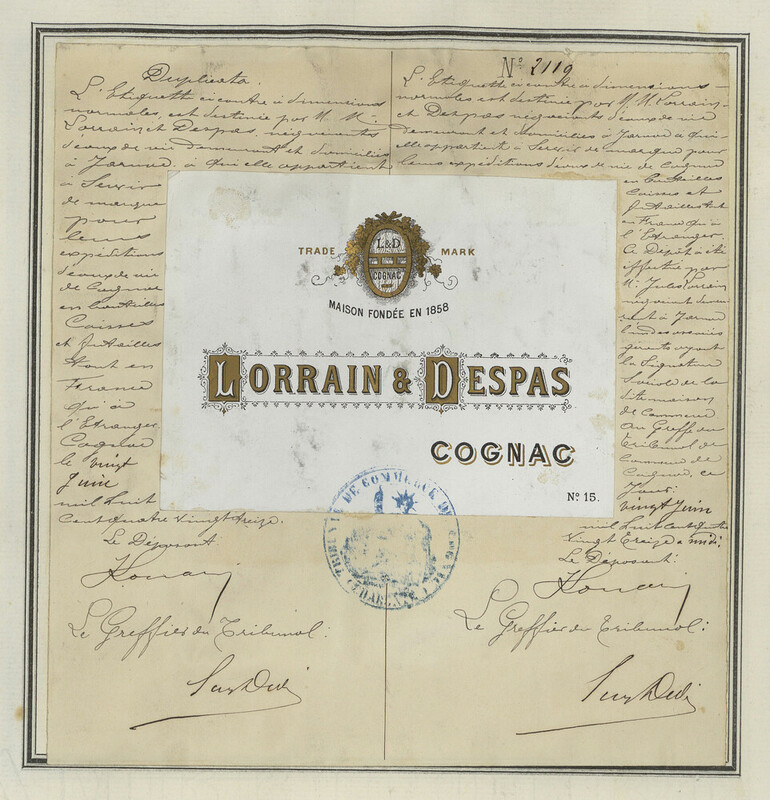 Duplicata.
L'Etiquette ci contre à dimensions
normales, est destinée par M. M.
Lorrain et Despas, négociants
d'eaux de vie demeurant et domiciliés
à Jarnac, à qui elle appartient
à Servir
de marque
pour
leurs
expéditions
d'eaux de vie
de Cognac
en bouteilles
Caisses
et futailles
tant en
France
qu'à
l'Etranger.
Cognac
le vingt
Juin
mil huit
cent quatre vingt treize.
Le Déposant
Le Greffier du Tribunal:
No 2119
L'Etiquette ci contre à dimensions
normales est destinée par M. M. Lorrain
et Despas négociants d'eaux de vie
demeurant et domiciliés à Jarnac à qui
elle appartient à Servir de marque pour
leurs expéditions d'eaux de vie de Cognac
en bouteilles
Caisses et
futailles tant
en France qu'à
l'Etranger.
Ce Dépôt a été
effectué par
M. Jules Lorrain
négociant demeu
rant à Jarnac
l'un des associés
gérants ayant
la Signature
Sociale de la
dite maison
de Commerce
au Greffe du
Tribunal de
Commerce de
Cognac, ce
Jour:
vingt Juin
mil huit cent quatre
vingt treize à midi.
Le Déposant:
Le Greffier du Tribunal:
L&D
TRADE MARK
COGNAC
MAISON FONDÉE EN 1858
LORRAIN & DESPAS
COGNAC
No. 15.
TRIBUNAL DE COMMERCE DE COGNAC (CHARENTE)